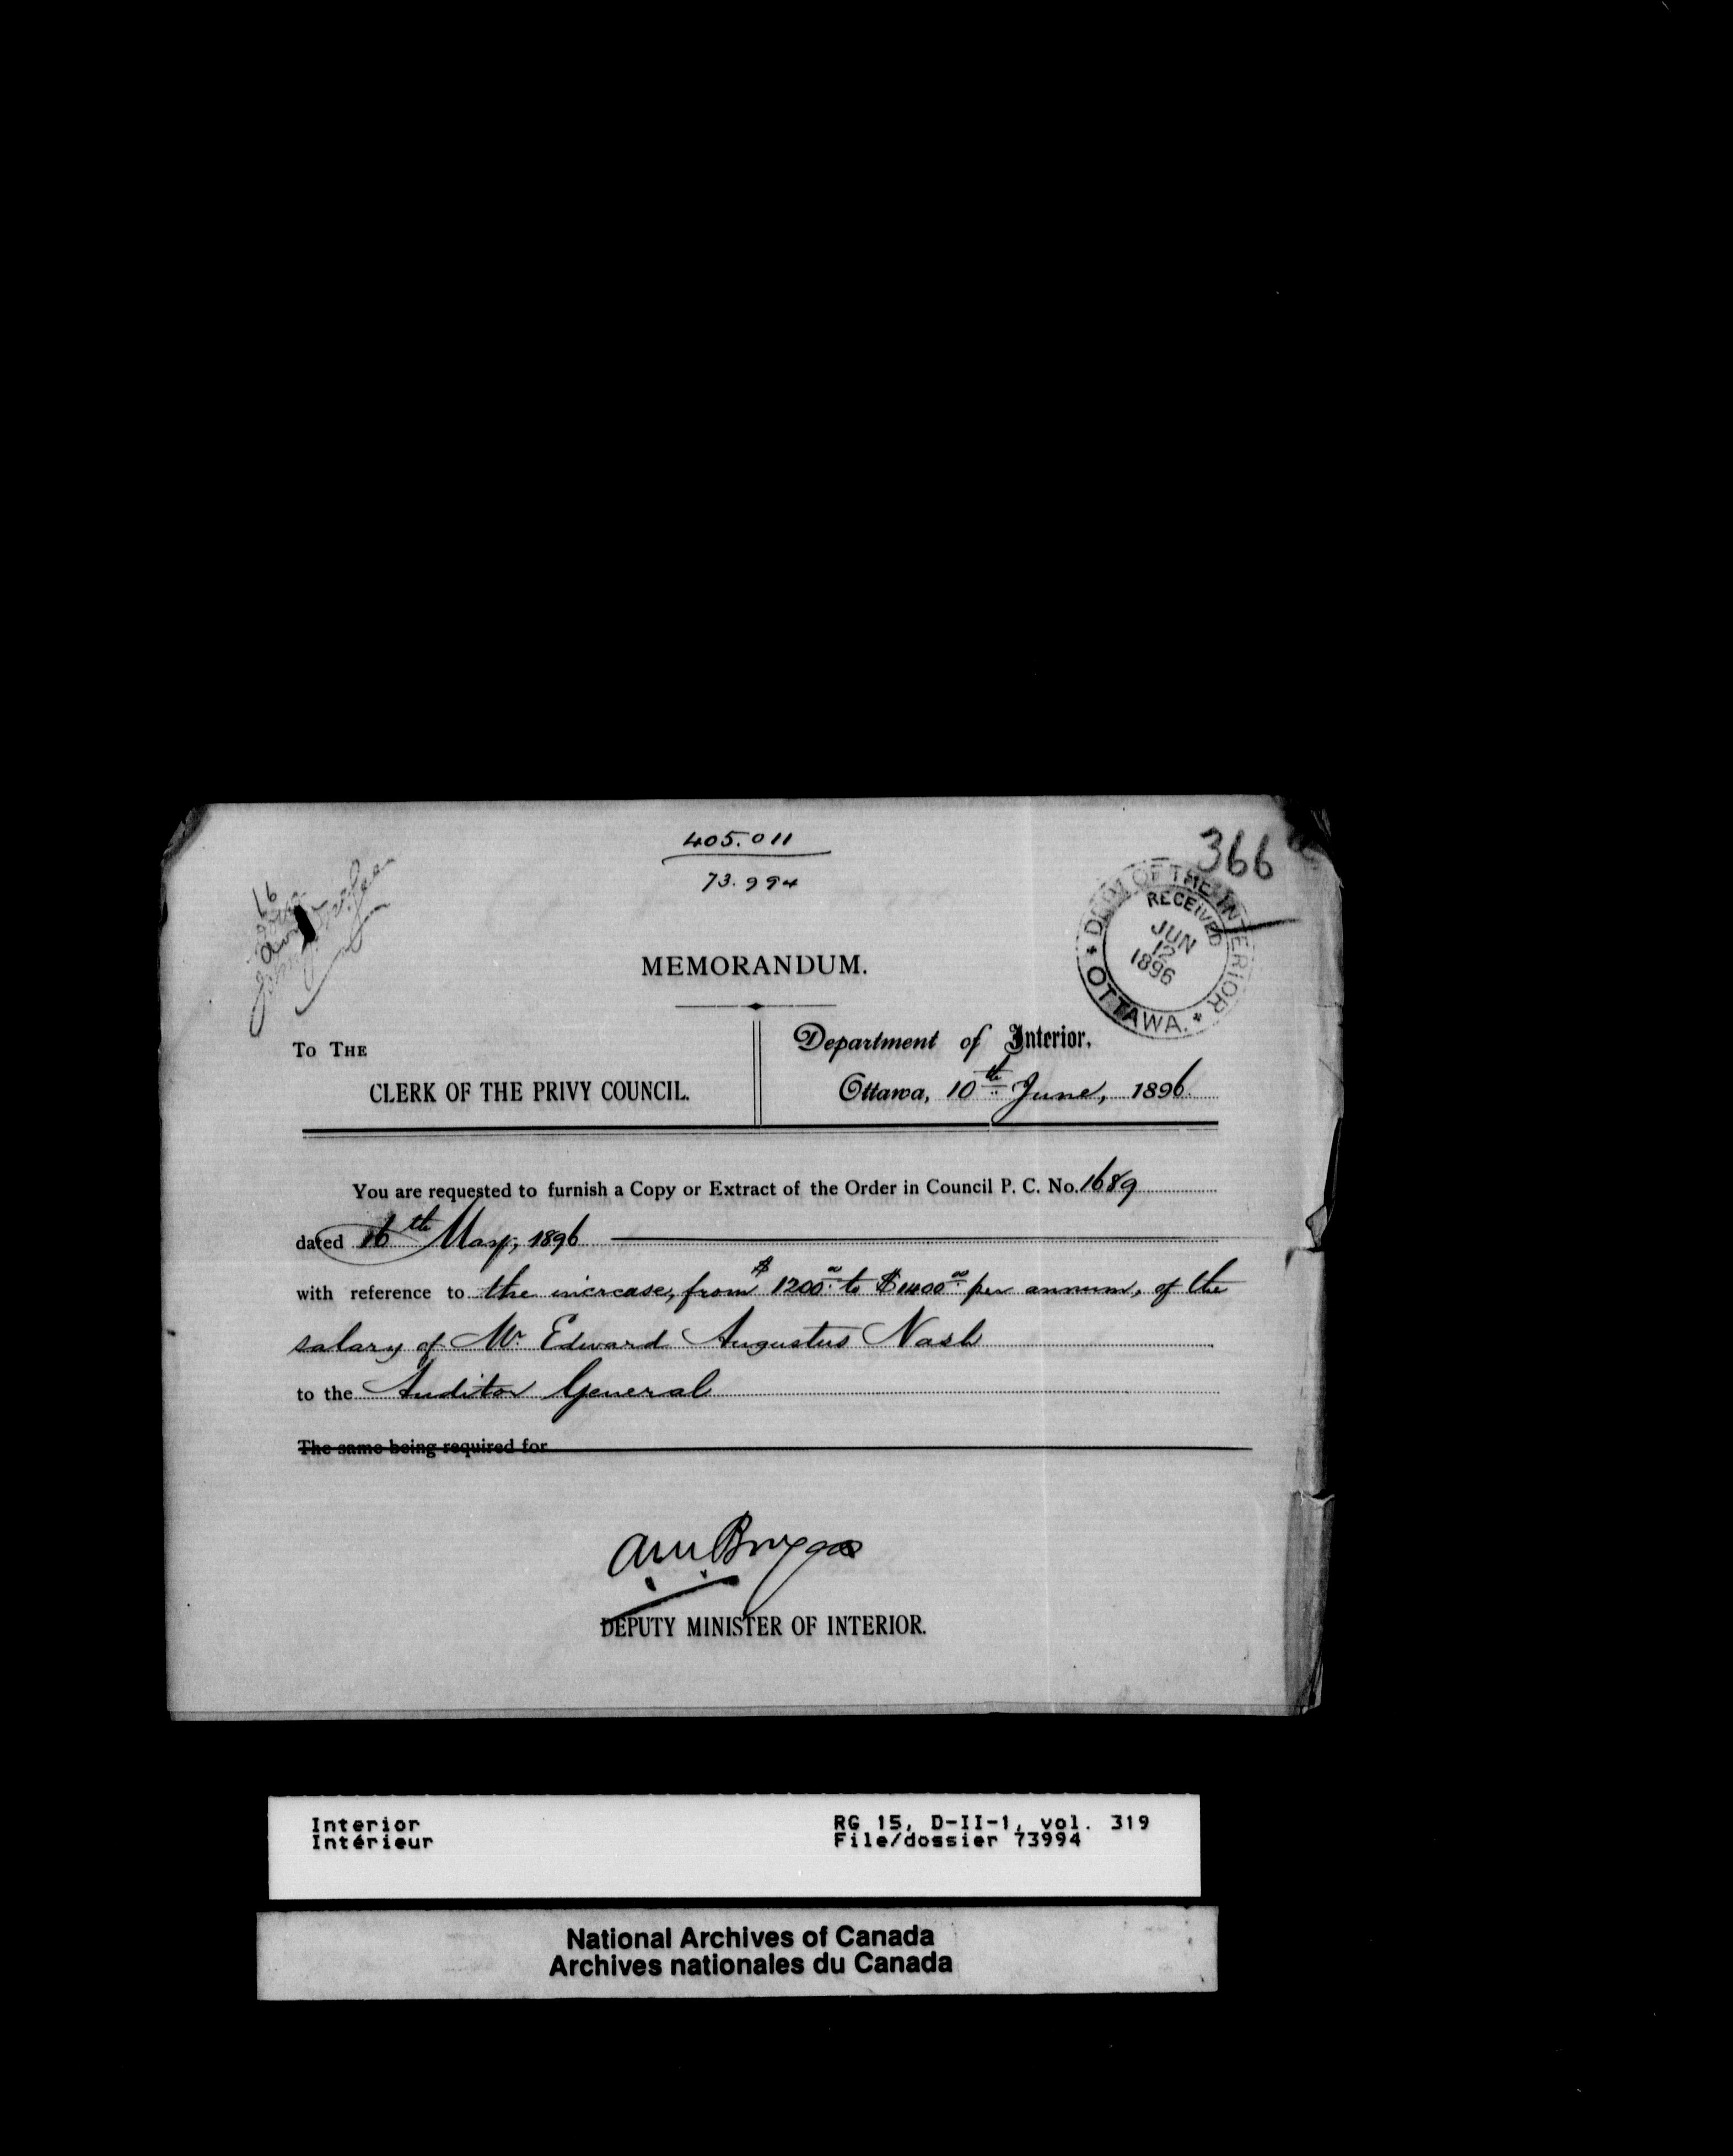 405.011
73.994
366
16
DEPT. OF THE INTERIOR
RECEIVED
JUN
12
1896
OTTAWA.
MEMORANDUM.
To The
CLERK OF THE PRIVY COUNCIL.
Department of Interior,
Ottawa, 10th June, 1896.
You are requested to furnish a Copy or Extract of the Order in Council P. C. No. 1689
dated 16th May, 1896
with reference to the increase, from $1200.00 to $1400.00 per annum, of the
salary of Mr. Edward Augustus Nash
to the Auditor General
The same being required for
DEPUTY MINISTER OF INTERIOR.
Interior
Intérieur
RG 15, D-II-1, vol. 319
File/dossier 73994
National Archives of Canada
Archives nationales du Canada